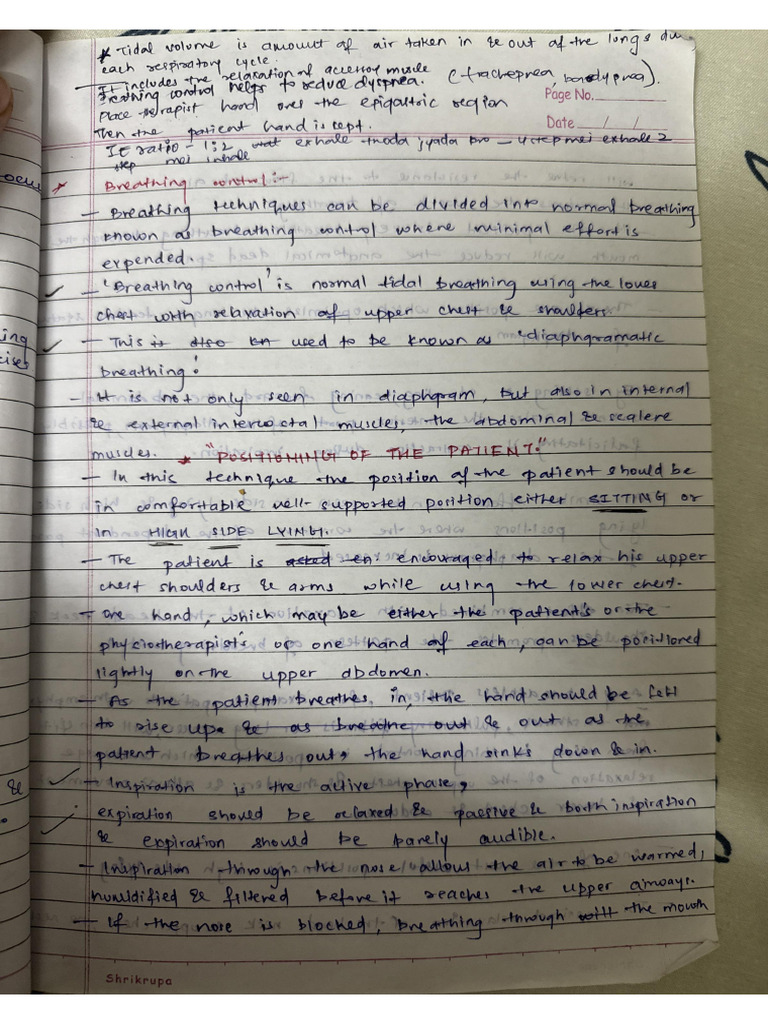 * Tidal volume is amount of air taken in & out of the lungs du
each respiratory cycle.
- It includes the relaxation of accessory muscle
Breathing control helps to reduce dyspnea. (trachepnea, bradypnea).
Place therapist hand over the epigastric region
Page No.
Then the patient hand is kept.
Date / /
IE ratio - 1:2 exhale thoda jyada bro - 4 step mei exhale 2
step mei inhale
ocus
* Breathing control:-
- Breathing techniques can be divided into normal breathing
known as breathing control where minimal effort is
expended.
- 'Breathing control' is normal tidal breathing using the lower
chest with relaxation of upper chest & shoulders
ing
- This is also kn used to be known as 'diaphgramatic
cises
breathing'
- It is not only seen in diaphgram, but also in internal
& external intercostal muscles, the abdominal & scalene
muscles. * "POSITIONING OF THE PATIENT:"
- In this technique the position of the patient should be
in comfortable well-supported position either SITTING or
in HIGH SIDE LYING.
- The patient is asted en encouraged to relax his upper
chest shoulders & arms while using the lower chest.
- One hand, which may be either the patient's or the
physiotherapist's or one hand of each, can be positioned
lightly on the upper abdomen.
- As the patient breathes in, the hand should be felt
to rise up & as breathe out & out as the
patient breathes out, the hand sinks down & in.
&
- Inspiration is the active phase,
expiration should be relaxed & passive & both inspiration
& expiration should be barely audible.
- Inspiration through the nose allows the air to be warmed,
humidified & filtered before it reaches the upper airways.
- If the nose is blocked, breathing through with the mouth
Shrikrupa